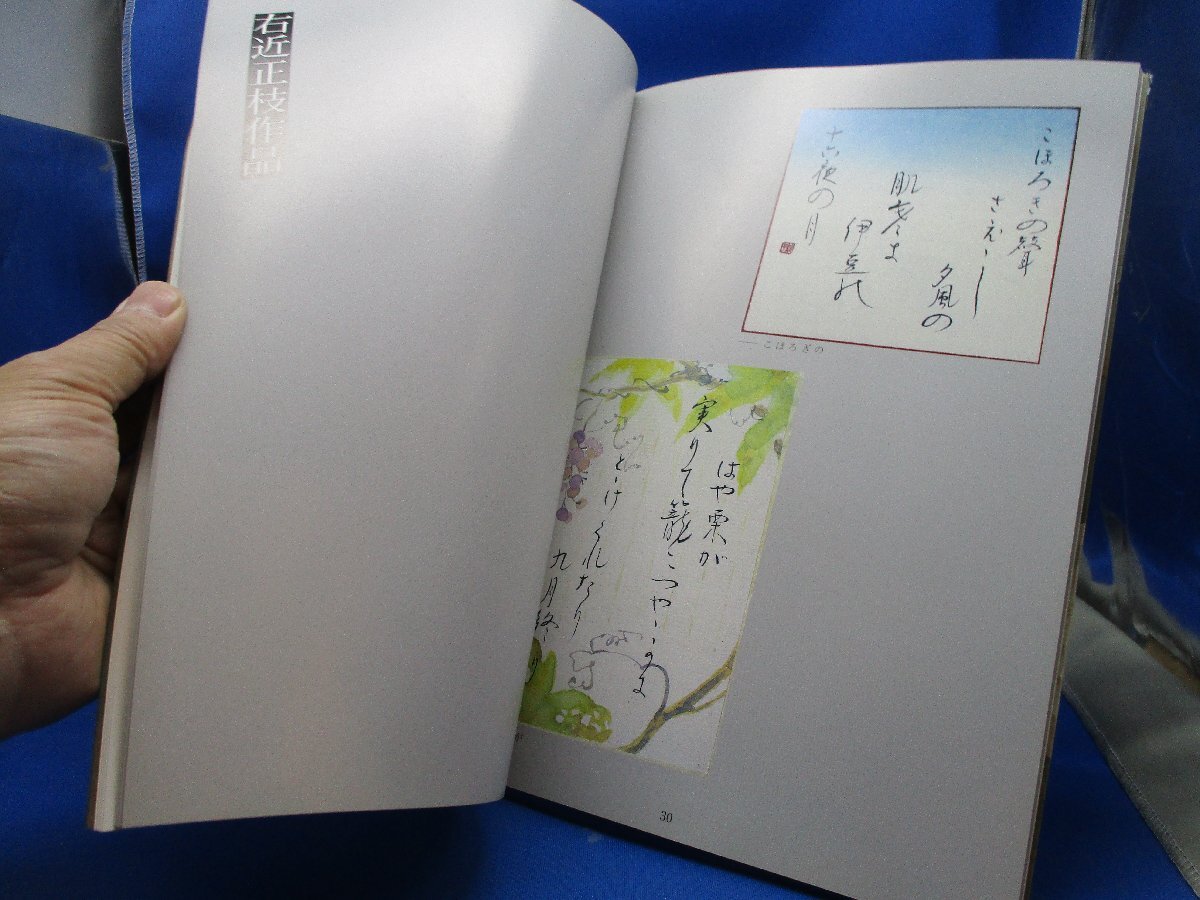 右近正枝作品
こほろぎの聲
さえし
夕風の
肌さむ
伊豆の
十六夜の月
こほろぎの
はや栗が
実りて籠につやゝかに
とゞけくれたり
九月終り
30